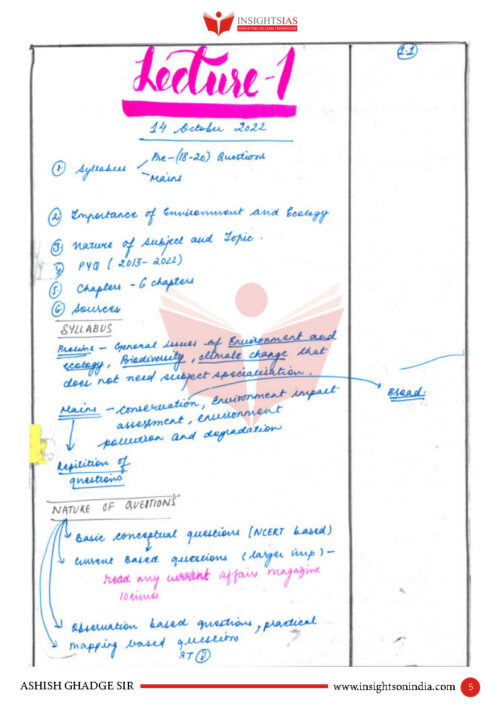 INSIGHTSIAS
SIMPLIFYING IAS EXAM PREPARATION
Lecture-1
1.1
14 October 2022
① Syllabus
Pre-(18-20) Questions
Mains
② Importance of Environment and Ecology
③ Nature of Subject and Topic.
④ PYQ (2013-2022)
⑤ Chapters - 6 chapters
⑥ Sources
SYLLABUS
Prelims - General issues of Environment and
ecology, Biodiversity, climate change that
does not need subject specialisation.
Mains - conservation, environment impact
assessment, environment
pollution and degradation
Broad
Repitition of
questions
NATURE OF QUESTIONS
Basic conceptual questions (NCERT based)
Current Based questions (larger imp) -
Read any current affairs magazine
10 times
Observation based questions, practical
mapping based question
ASHISH GHADGE SIR
www.insightsonindia.com
5